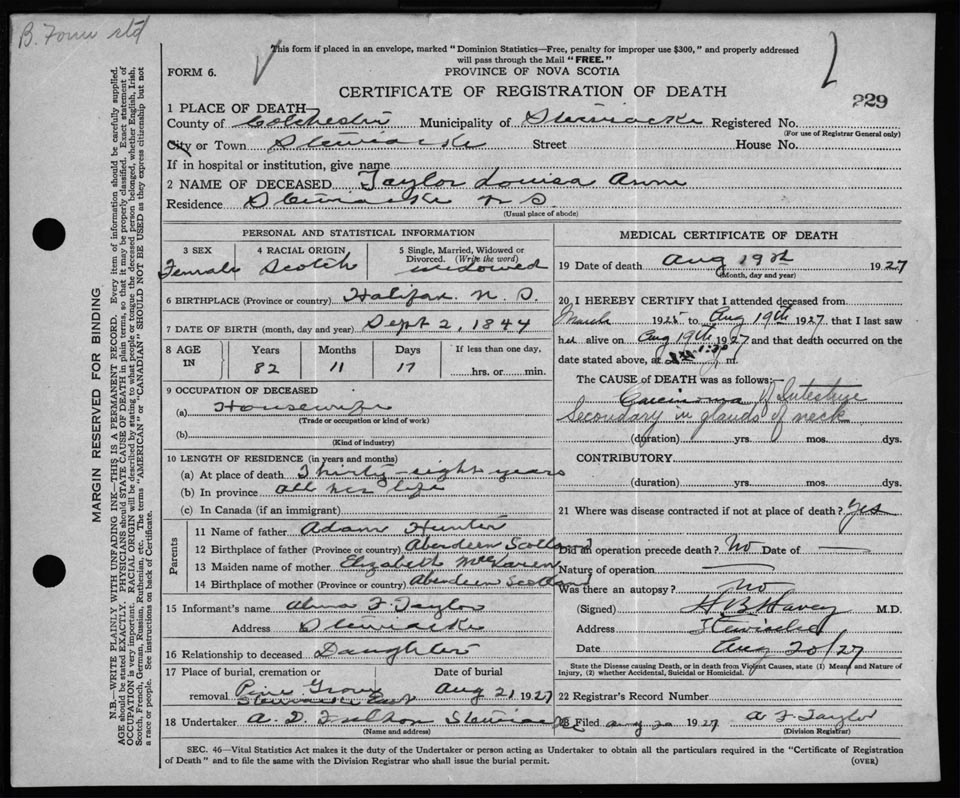 B. Form std
This form if placed in an envelope, marked "Dominion Statistics—Free, penalty for improper use $300," and properly addressed
will pass through the Mail "FREE."
FORM 6.
PROVINCE OF NOVA SCOTIA
CERTIFICATE OF REGISTRATION OF DEATH
229
1 PLACE OF DEATH
County of Colchester Municipality of Stewiacke Registered No.
(For use of Registrar General only)
City or Town Stewiacke Street House No.
If in hospital or institution, give name
2 NAME OF DECEASED Taylor Louisa Anne
Residence Stewiacke N S.
(Usual place of abode)
PERSONAL AND STATISTICAL INFORMATION
3 SEX 4 RACIAL ORIGIN 5 Single, Married, Widowed or
Divorced. (Write the word)
Female Scotch widowed
6 BIRTHPLACE (Province or country) Halifax. N. S.
7 DATE OF BIRTH (month, day and year) Sept 2, 1844
8 AGE IN Years Months Days If less than one day,
82 11 17 hrs. or min.
9 OCCUPATION OF DECEASED
(a) Housewife
(Trade or occupation or kind of work)
(b)
(Kind of industry)
10 LENGTH OF RESIDENCE (in years and months)
(a) At place of death Thirty-eight years
(b) In province all her life
(c) In Canada (if an immigrant)
Parents
11 Name of father Adam Hunter
12 Birthplace of father (Province or country) Aberdeen Scotland
13 Maiden name of mother Elizabeth McLaren
14 Birthplace of mother (Province or country) Aberdeen Scotland
15 Informant's name Alma F. Taylor
Address Stewiacke
16 Relationship to deceased Daughter
17 Place of burial, cremation or Date of burial
removal Pine Grove Aug 21 1927
Stewiacke East
18 Undertaker A. D. Fulton Stewiacke
(Name and address)
MEDICAL CERTIFICATE OF DEATH
19 Date of death Aug 19th 1927
(Month, day and year)
20 I HEREBY CERTIFY that I attended deceased from
March 1925 to Aug 19th 1927 that I last saw
her alive on Aug 19th 1927 and that death occurred on the
date stated above, at m.
The CAUSE of DEATH was as follows:
Carcinoma of Intestine
Secondary in glands of neck
(duration) yrs. mos. dys.
CONTRIBUTORY.
(duration) yrs. mos. dys.
21 Where was disease contracted if not at place of death? Yes
Did an operation precede death? No Date of —
Nature of operation —
Was there an autopsy? No
(Signed) H B Havey M.D.
Address Stewiacke
Date Aug 20/27
State the Disease causing Death, or in death from Violent Causes, state (1) Means and Nature of
Injury, (2) whether Accidental, Suicidal or Homicidal.
22 Registrar's Record Number
23 Filed Aug 20 1927 A F Taylor
(Division Registrar)
SEC. 46—Vital Statistics Act makes it the duty of the Undertaker or person acting as Undertaker to obtain all the particulars required in the "Certificate of Registration
of Death" and to file the same with the Division Registrar who shall issue the burial permit.
(OVER)
MARGIN RESERVED FOR BINDING
N.B.—WRITE PLAINLY WITH UNFADING INK—THIS IS A PERMANENT RECORD. Every item of information should be carefully supplied.
AGE should be stated EXACTLY. PHYSICIANS should STATE CAUSE OF DEATH in plain terms, so that it may be properly classified. Exact statement of
OCCUPATION is very important. RACIAL ORIGIN will be described by stating to what people or tongue the deceased person belonged, whether English, Irish,
Scotch, French, German, Russian, Ruthenian, etc. The terms "AMERICAN" or "CANADIAN" SHOULD NOT BE USED as they express citizenship but not
a race or people. See instructions on back of Certificate.